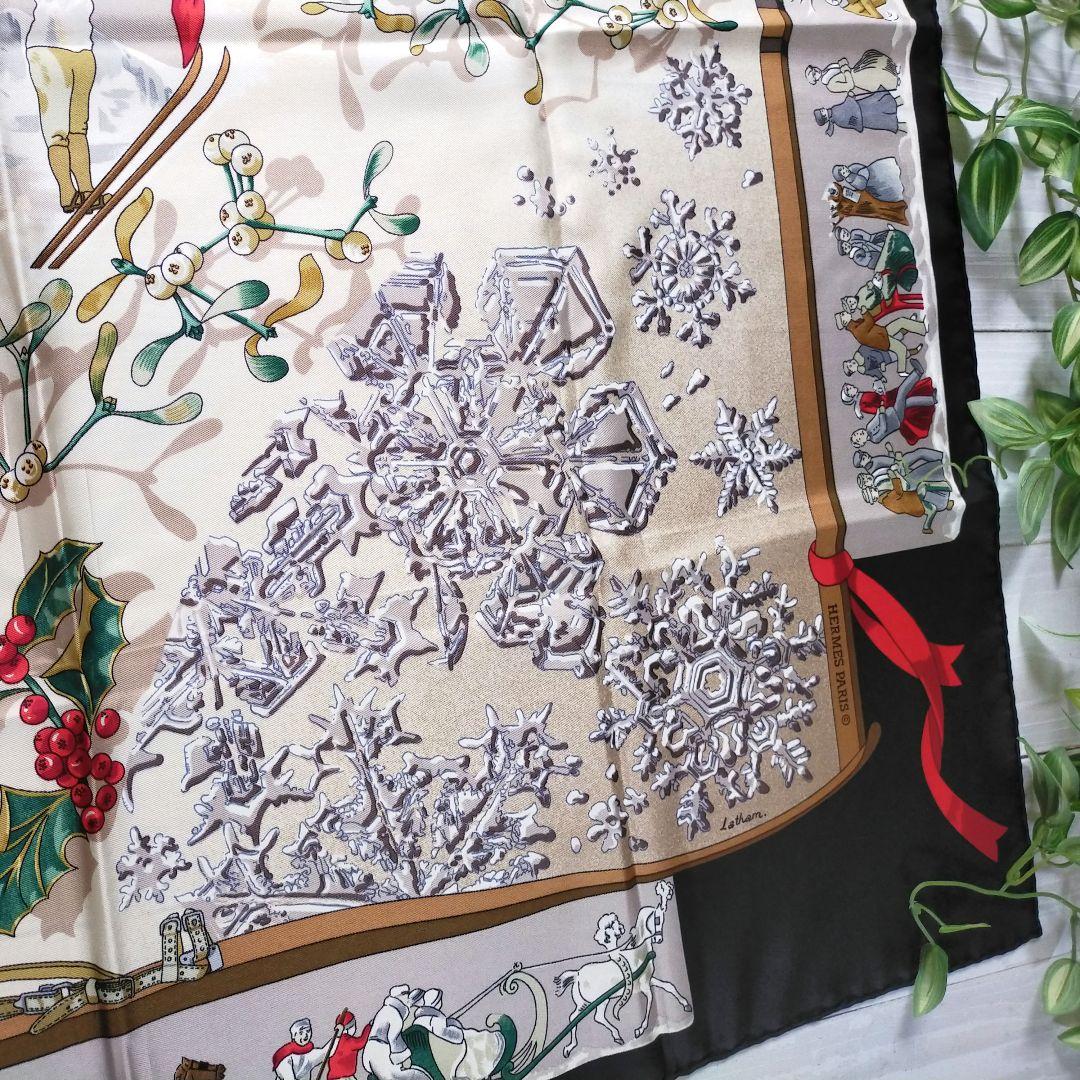 HERMES PARIS ©
Latham.